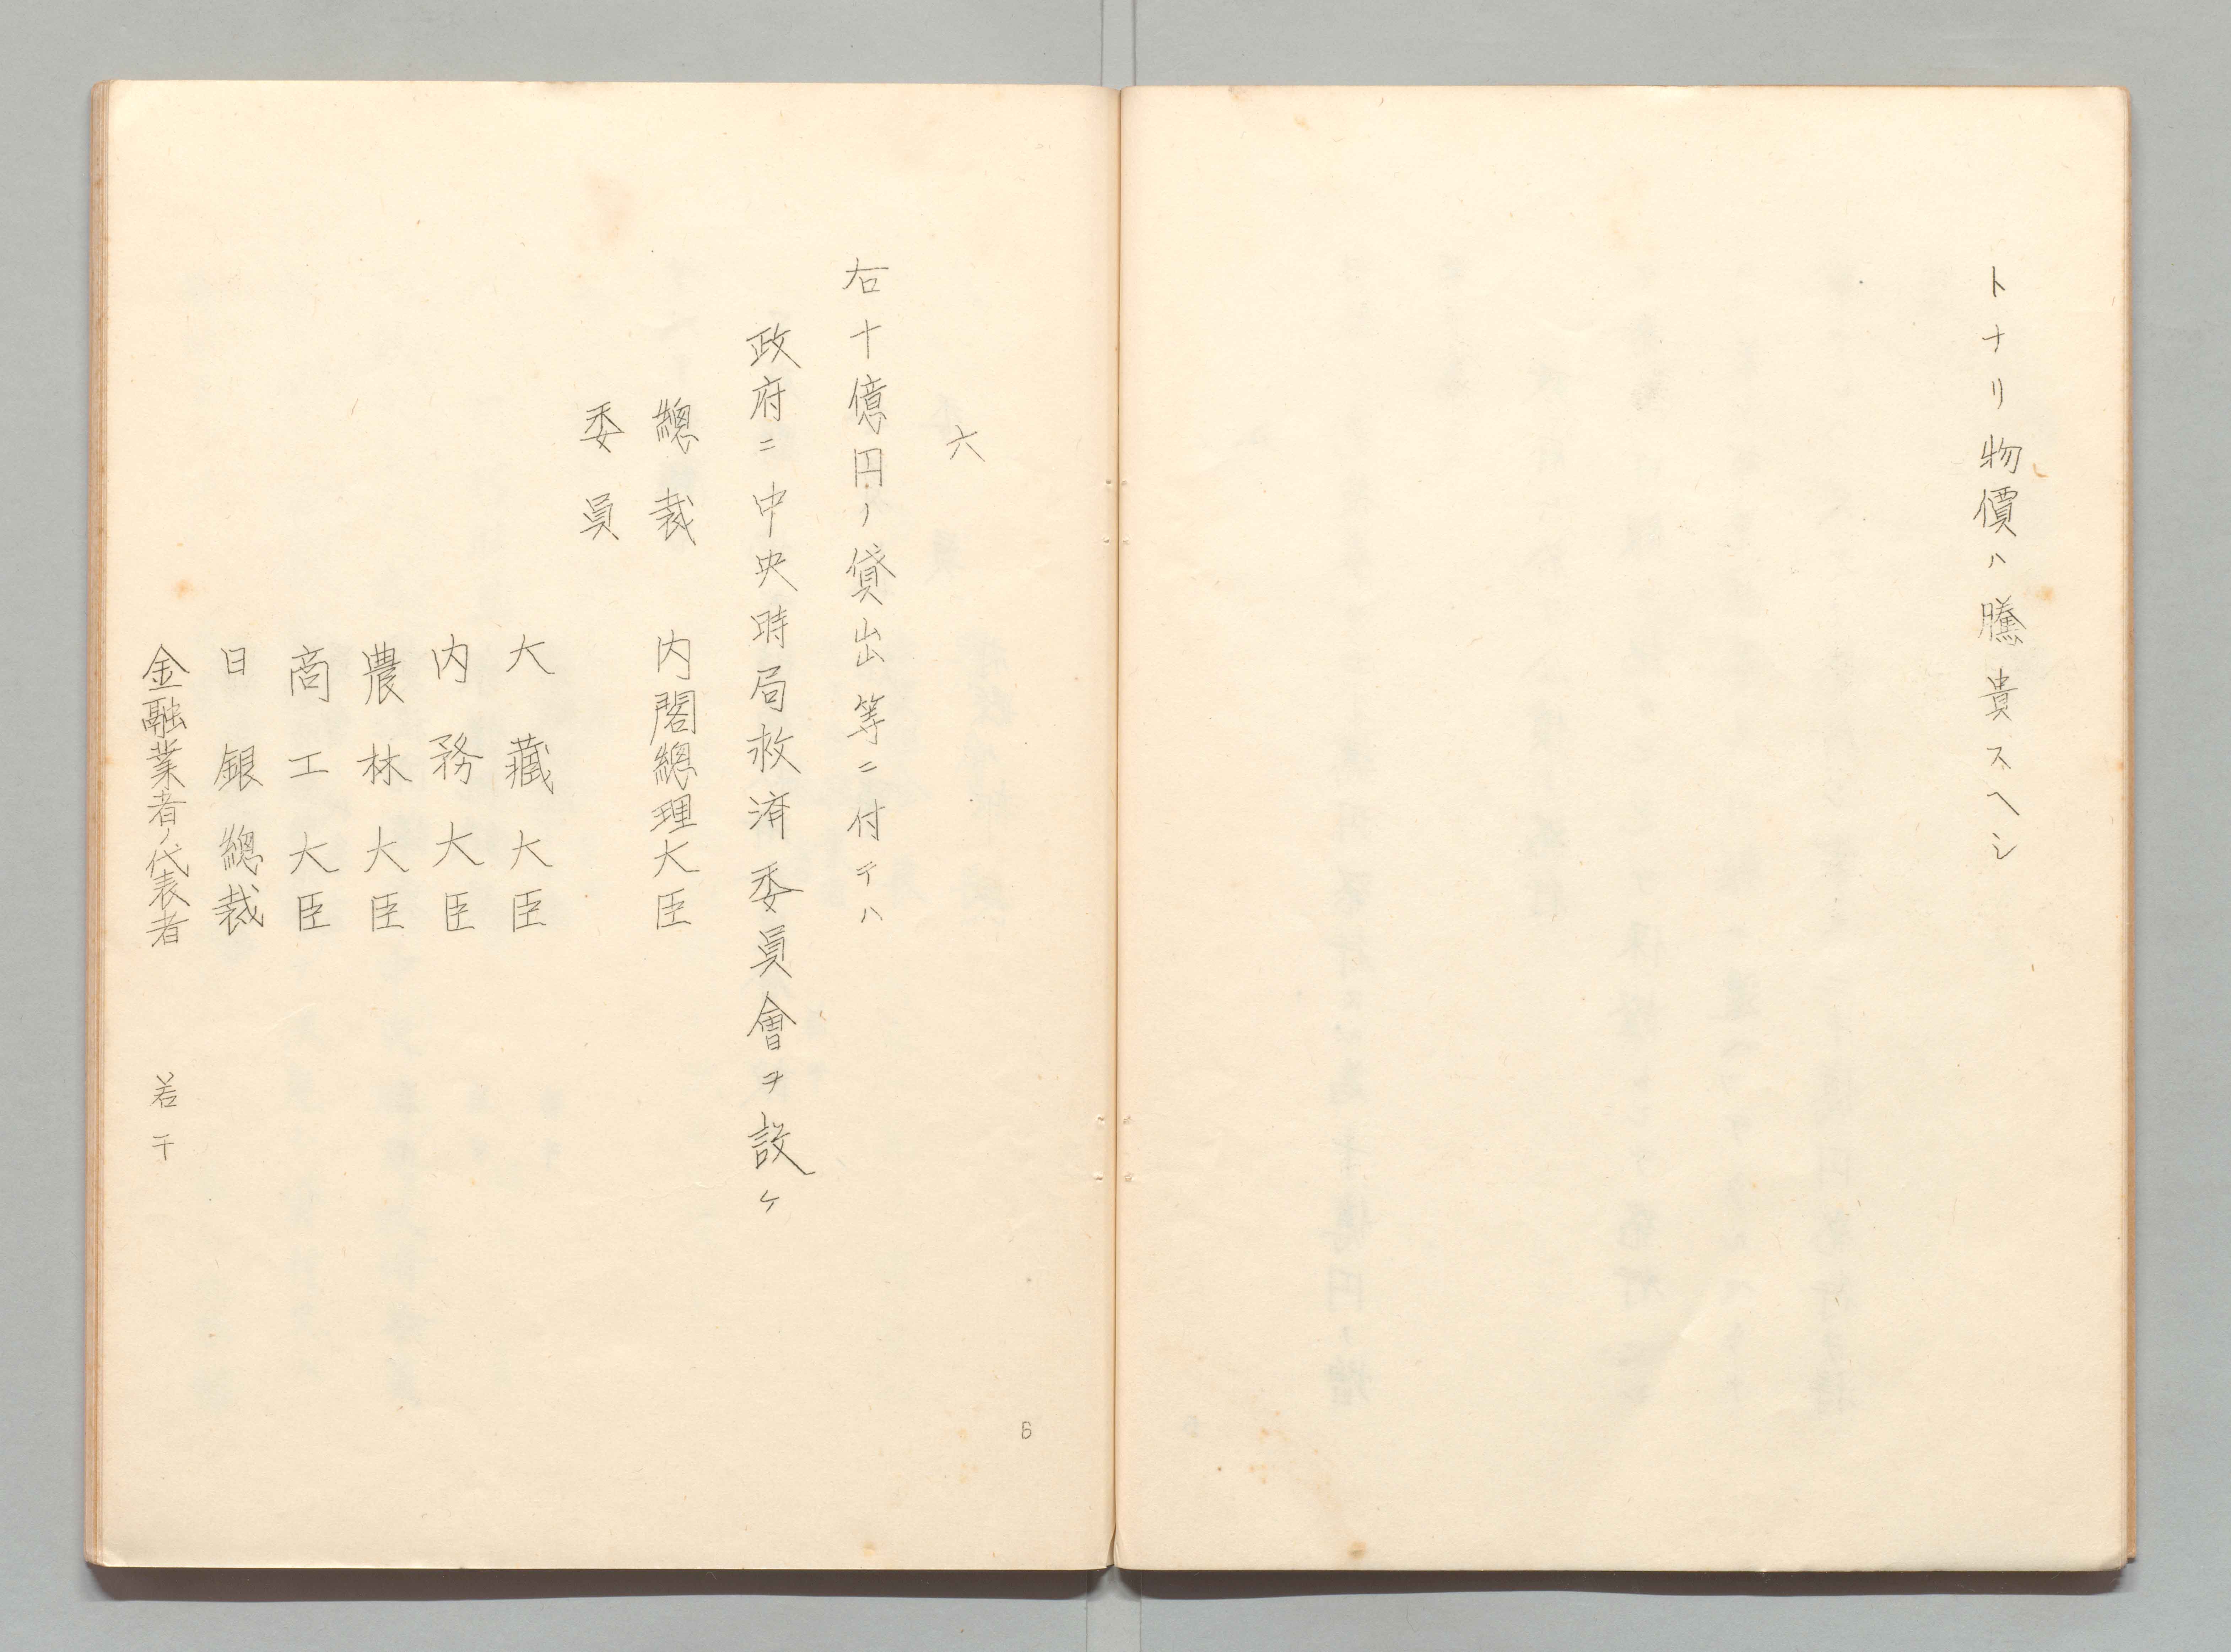 トナリ物價ハ騰貴スヘシ
六
右十億円ノ貸出等ニ付テハ
政府ニ中央時局救済委員會ヲ設ケ
總裁 内閣總理大臣
委員
大藏大臣
内務大臣
農林大臣
商工大臣
日銀總裁
金融業者ノ代表者 若干
6